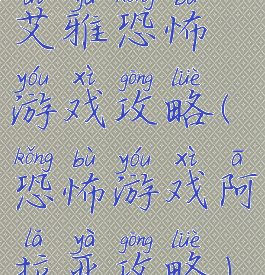 ài yǎ kǒng bù
艾雅恐怖
yóu xì gōng lüè
游戏攻略(
kǒng bù yóu xì ā
恐怖游戏阿
lā yà gōng lüè
拉亚攻略)